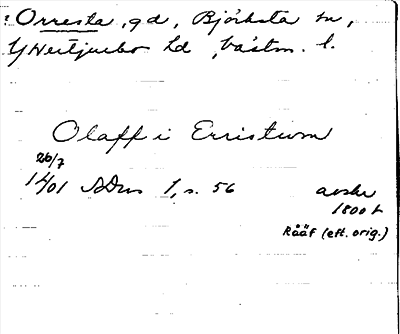 : Orresta, gd, Björksta sn,
Ytterstjurbo hd, Västm. l.
Olaff i Erristum
26/7
1401 SDns 1, s. 56 avskr
1800 t
Rääf (eft. orig.)